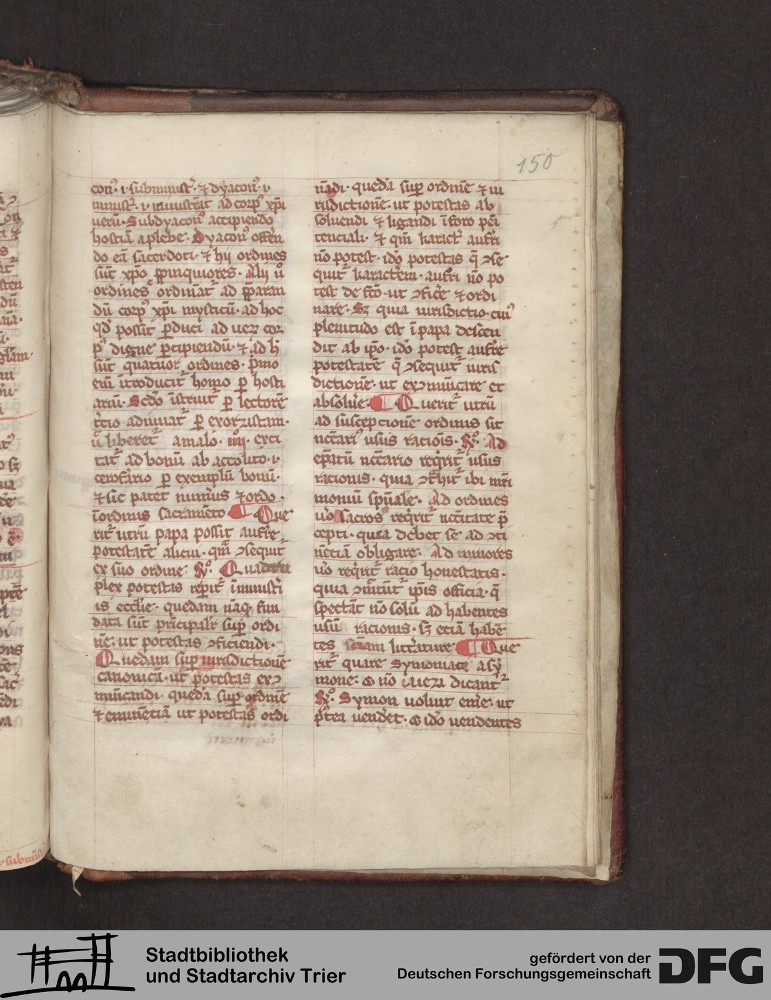 150
con᷒. i. subminist᷑. ⁊ dyacon᷒. i.
minist᷑. i. ministrat ad corp᷒ xp̄i
ueru᷒. Subdyacon᷒ accipiendo
hostiā a plebe. Dyacon᷒ offeren
do eā sacerdoti. ⁊ hii ordines
sūt xp̄o ꝓpinquiores. Alii u᷒
ordines ordināt᷑ ad p̄paran
dū corp᷒ xp̄i mysticū. ad hoc
qd̓ possit ꝑduci ad ueꝝ cor
p᷒ digne ꝑcipiendū. ⁊ ad h̓
sūt quatuor ordines. pͥmo
enī ītroducit᷑ homo ꝑ hosti
ariū. Scd̓o īstruit᷑ ꝑ lectorē
t̓cio adiuuat᷑ ꝑ exorzistam.
ū liberet᷑ a malo. iiij. exci
tat᷑ ad bonū ab accolito. i.
ceroferario ꝑ exemplū bonū.
⁊ sic patet num̓us ⁊ ordo.
ī ordinis sacramēto Que
rit᷑ utrū papa possit aufre
potestatē alicui. qm̄ ꝯsequit᷑
ex suo ordine. R̓. Quadru
plex potestas reꝑit᷑ ī minist᷑i
is ecclīe. quedam nāq; fun
data sūt principalr̓ suꝑ ordi
nē. ut potestas ꝯficiendi.
Quedam suꝑ iurisdictionē
canonicā. ut potestas exꝯ
muīcandi. quedā suꝑ ordinē
⁊ eminētiā ut potestas ordi
nādi. quedā suꝑ ordinē ⁊ iu
risdictionē. ut potestas ab
soluendi ⁊ ligandi ī foro pēi
tenciali. ⁊ qm̄ karact᷑ aufri
nō potest. ido potestas q̄ ꝯse
quit᷑ karacterem. aufri nō po
test de fc̄o. ut ꝯfic̓e ⁊ ordi
nare. Sꝫ quia iurisdictio. cui᷒
plenitudo est ī papa descen
dit ab ip̄o. ido potest aufre
potestatē q̄ ꝯsequit᷑ iuris
dictionē. ut exꝯmuīcare et
absolu̓e. Querit᷑ utrū
ad susceptionē ordinis sit
nc̄c̄ari᷒ usus racōis. R̓. Ad
ep̄atū nc̄c̄ario reqͥrit᷑ usus
racionis. quia ꝯt᷑hit᷑ ibi mr̄i
moniū spūale. Ad ordines
u̓o sacros reqͥrit᷑ nc̄c̄itate p̄
cepti. quia debet se ad ꝯti
nēciā obligare. Ad minores
u̓o reqͥrit᷑ racio honestatis.
quia ꝯmittūt᷑ ip̄is officia. q̄
spectāt nō solū ad habentes
usū racionis. sꝫ etiā habē
tes litt᷑aturē Que
rit᷑ quare symoniaci a sy
mone. ⁊ nō dicant᷑
R̓. Symon uoluit em̓e. ut
pͦtea uend̓et. ⁊ ido uendentes
Stadtbibliothek
und Stadtarchiv Trier
gefördert von der
Deutschen Forschungsgemeinschaft
DFG